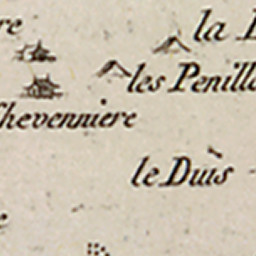 re
la
les Penill
Chevenniere
le Duis